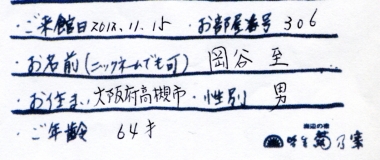 ・ご来館日 2012.11.15 ・お部屋番号 306
・お名前(ニックネームでも可) 岡谷 至
・お住まい 大阪府高槻市 ・性別 男
・ご年齢 64才
海辺の宿